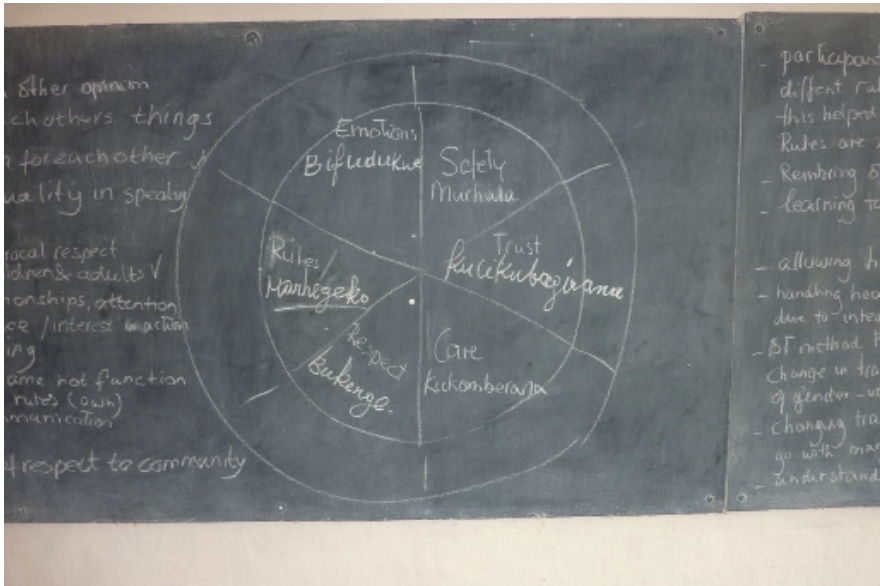 other opinion
chothers things
foreachother
ality in speaking
rocal respect
ldren & adults V
onships, attention
ce / interest in action
ing
ame not function
rules (own)
munication
f respect to community
Emotions
Bifudukwe
Safety
Murhula
Trust
Kucikubagirana
Care
Kukomberana
Respect
Bukenge.
Rules
Marhegeko
- participant
diffent rul
this helped
Rules are
- Rembring
- learning to
- allowing h
- handling hea
due to inte
- ST method
change in tra
of gender - 
- changing tra
go with man
- understand